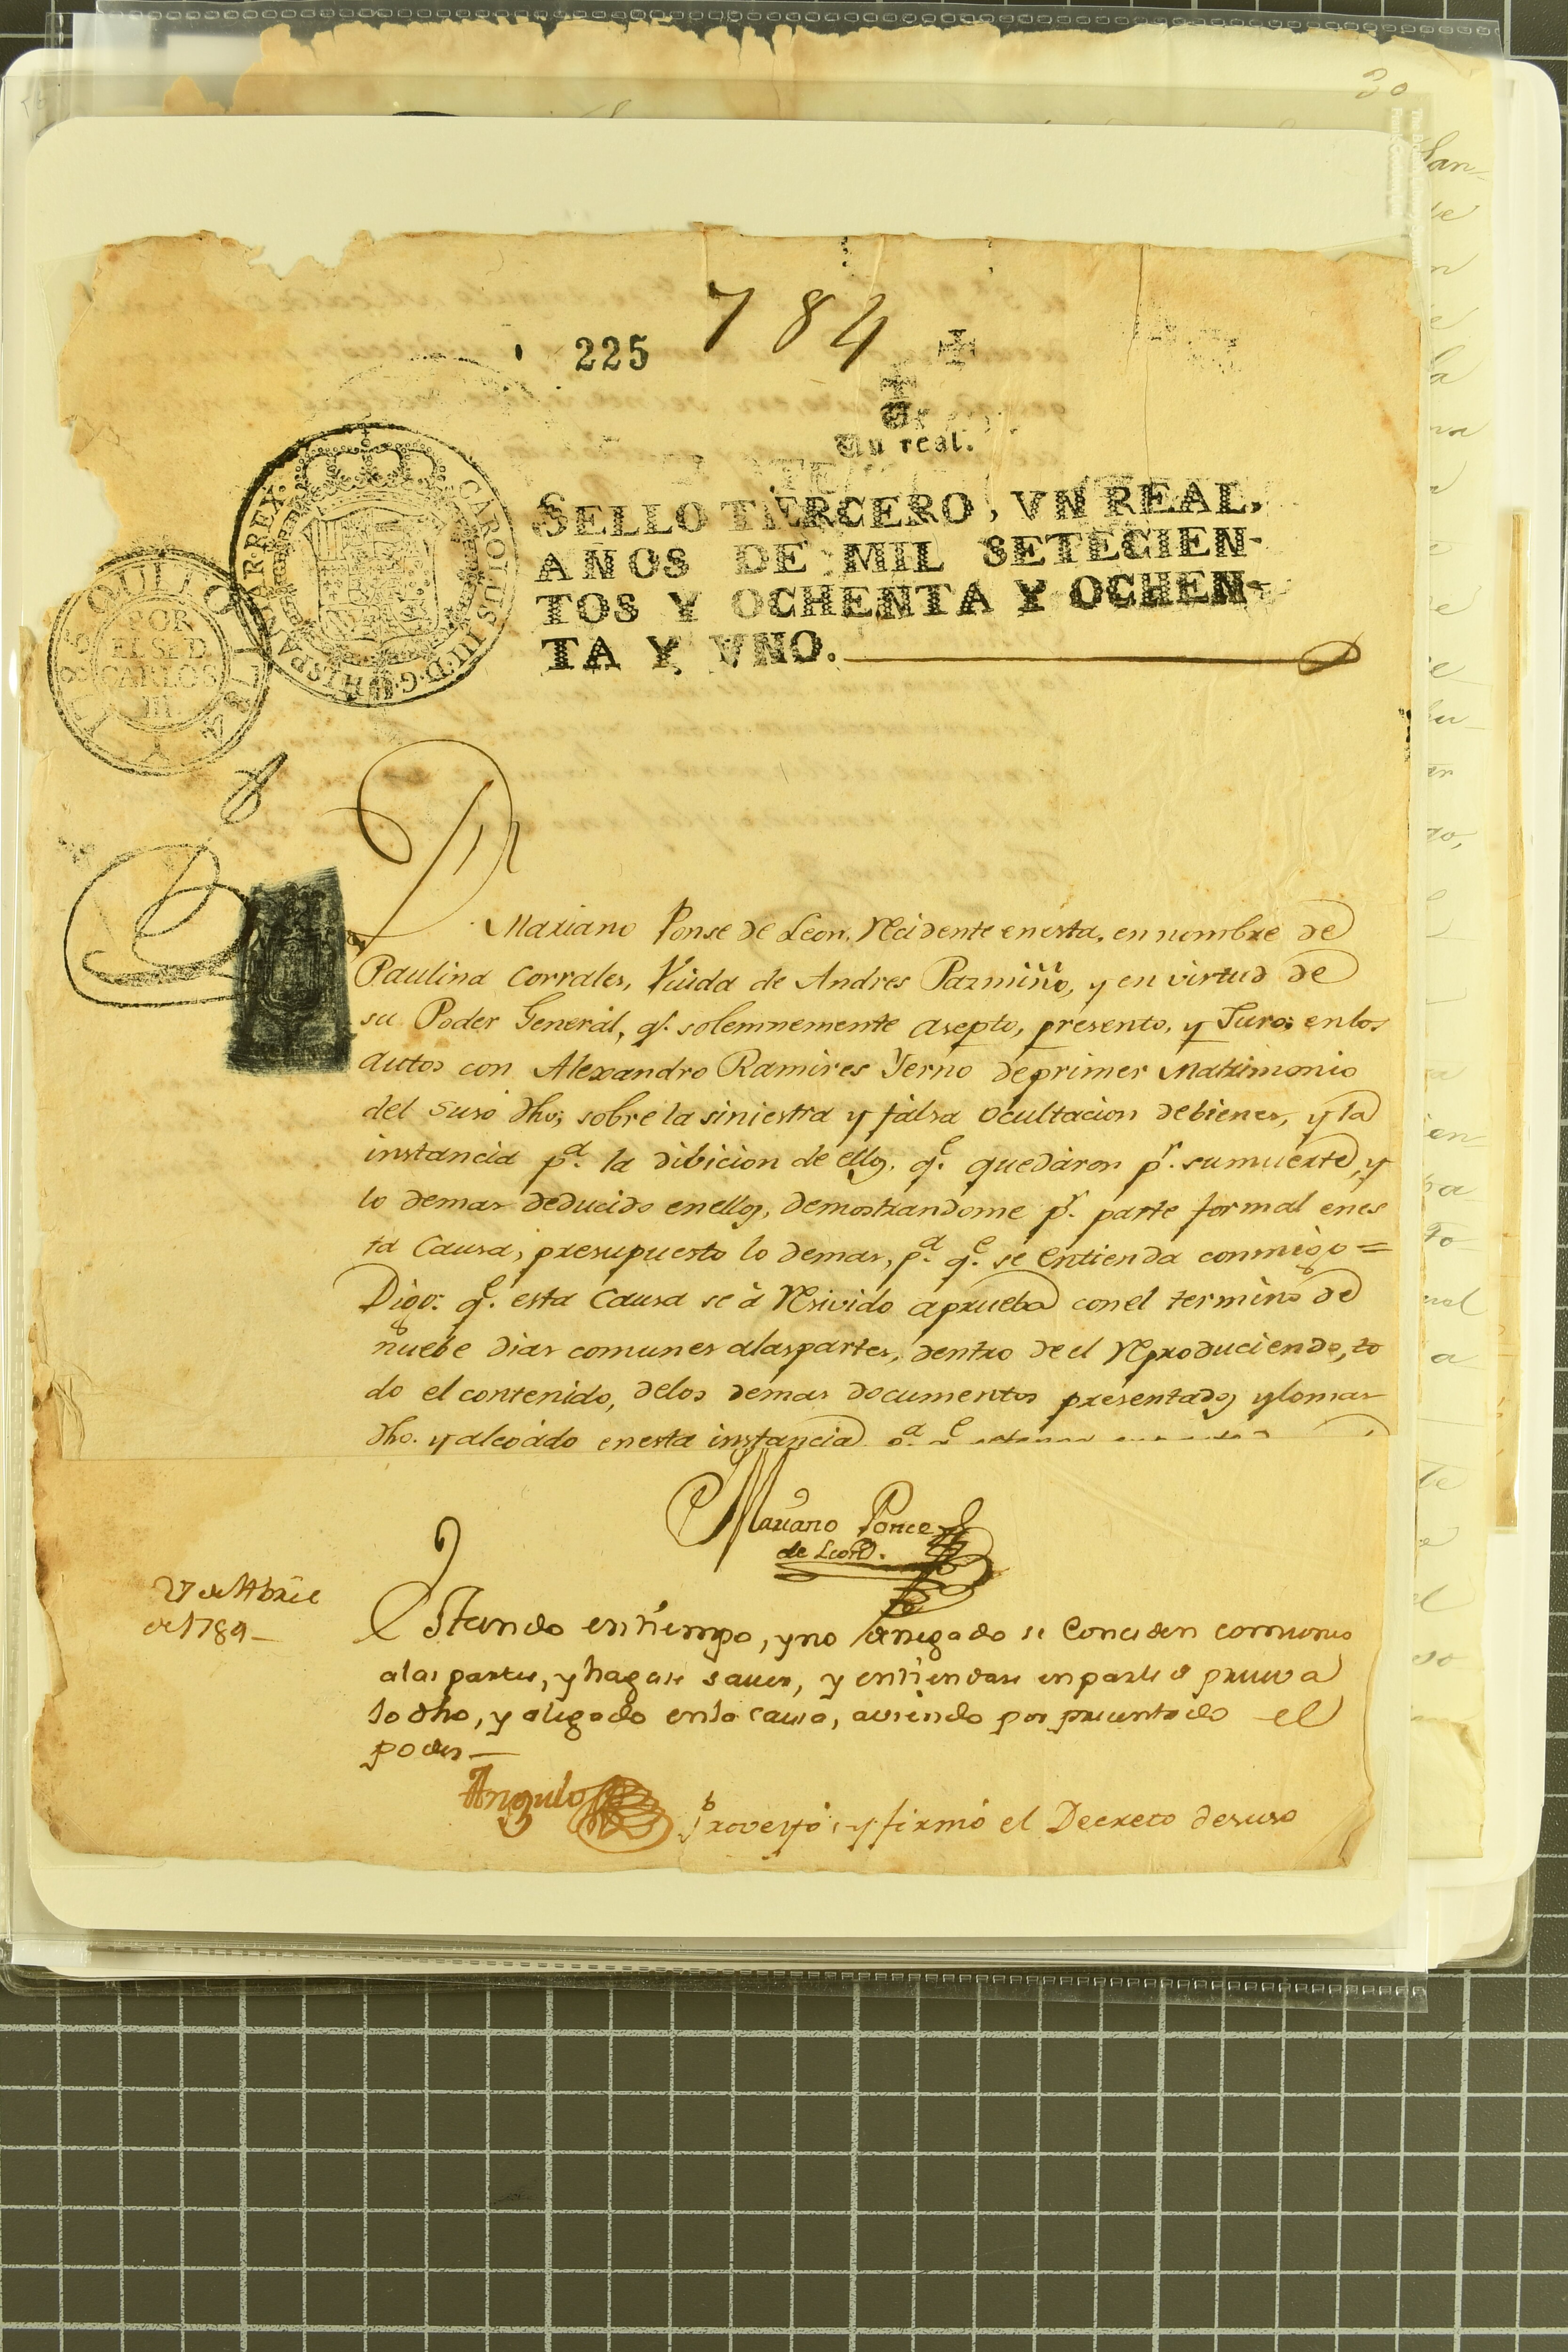 30
784
225
Un real.
SELLO TERCERO, VN REAL,
AÑOS DE MIL SETECIEN-
TOS Y OCHENTA Y OCHEN-
TA Y VNO.
CAROLUS III·D·G·HISPANIAR·REX·
QUITO
POR
EL S.^r D.
CARLOS
III.
Mariano Ponse de Leon, Recidente en esta, en nombre de
Paulina Corrales, Viuda de Andres Pazmiño, y en virtud de
su Poder General, q.^e solemnemente asepto, presento, y Juro; en los
autos con Alexandro Ramires Yerno de primer Matrimonio
del suso dho; sobre la siniestra y falsa ocultacion debienes, y la
instancia p.^a la dibicion de ellos, q.^e quedaron p.^r sumuerte, y
lo demas deducido enellos, demostrandome p.^r parte formal enes
ta Causa, presupuesto lo demas, p.^a q.^e se entienda conmigo =
Digo: q.^e esta Causa se à Resivido aprueba con el termino de
nuebe dias comunes alaspartes, dentro de el Reproduciendo, to
do el contenido, delos demas documentos presentados y lomas
dho. y alegado enesta instancia p.^a q.^e
Mariano Ponce
de Leon.
27 de Abril
de 1789
Estando en tiempo, y no denegado se Conceden comunes
alas partes, y hagase saver, y entiendase en parte de prueva
lo dho, y alegado en la causa, aviendo por presentado el
poder
Angulo
Proveyó, y firmó el Decreto desuso